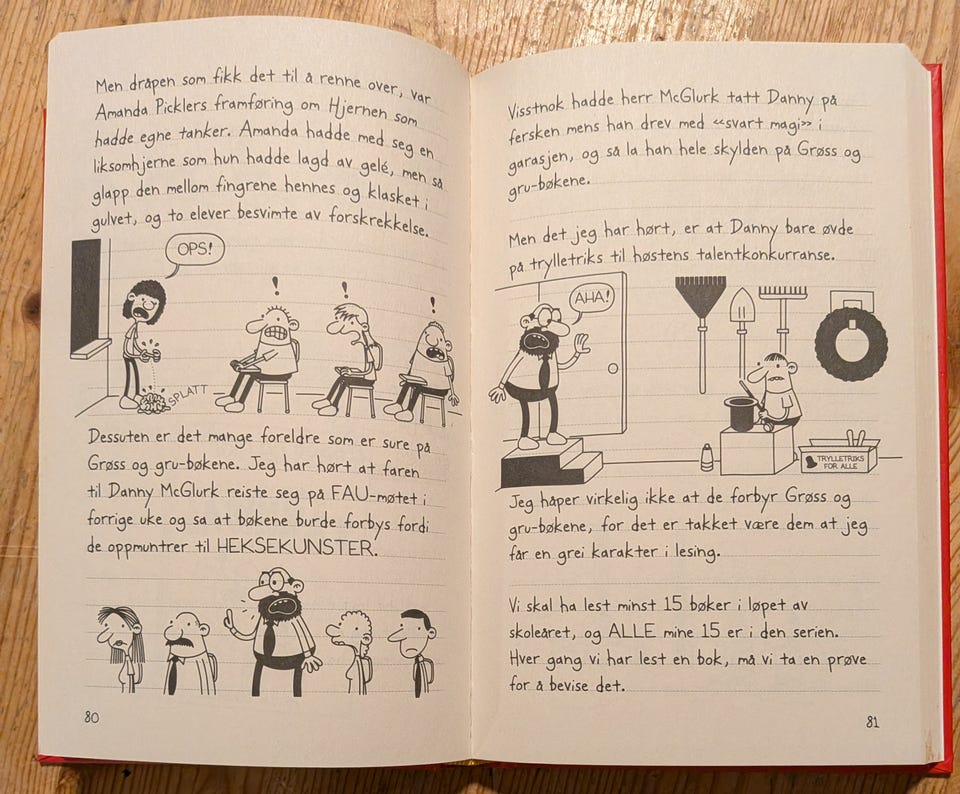 Men dråpen som fikk det til å renne over, var
Amanda Picklers framføring om Hjernen som
hadde egne tanker. Amanda hadde med seg en
liksomhjerne som hun hadde lagd av gelé, men så
glapp den mellom fingrene hennes og klasket i
gulvet, og to elever besvimte av forskrekkelse.
OPS!
!
!
!
SPLATT
Dessuten er det mange foreldre som er sure på
Grøss og gru-bøkene. Jeg har hørt at faren
til Danny McGlurk reiste seg på FAU-møtet i
forrige uke og sa at bøkene burde forbys fordi
de oppmuntrer til HEKSEKUNSTER.
80
Visstnok hadde herr McGlurk tatt Danny på
fersken mens han drev med «svart magi» i
garasjen, og så la han hele skylden på Grøss og
gru-bøkene.
Men det jeg har hørt, er at Danny bare øvde
på trylletriks til høstens talentkonkurranse.
AHA!
TRYLLETRIKS
FOR ALLE
Jeg håper virkelig ikke at de forbyr Grøss og
gru-bøkene, for det er takket være dem at jeg
får en grei karakter i lesing.
Vi skal ha lest minst 15 bøker i løpet av
skoleåret, og ALLE mine 15 er i den serien.
Hver gang vi har lest en bok, må vi ta en prøve
for å bevise det.
81